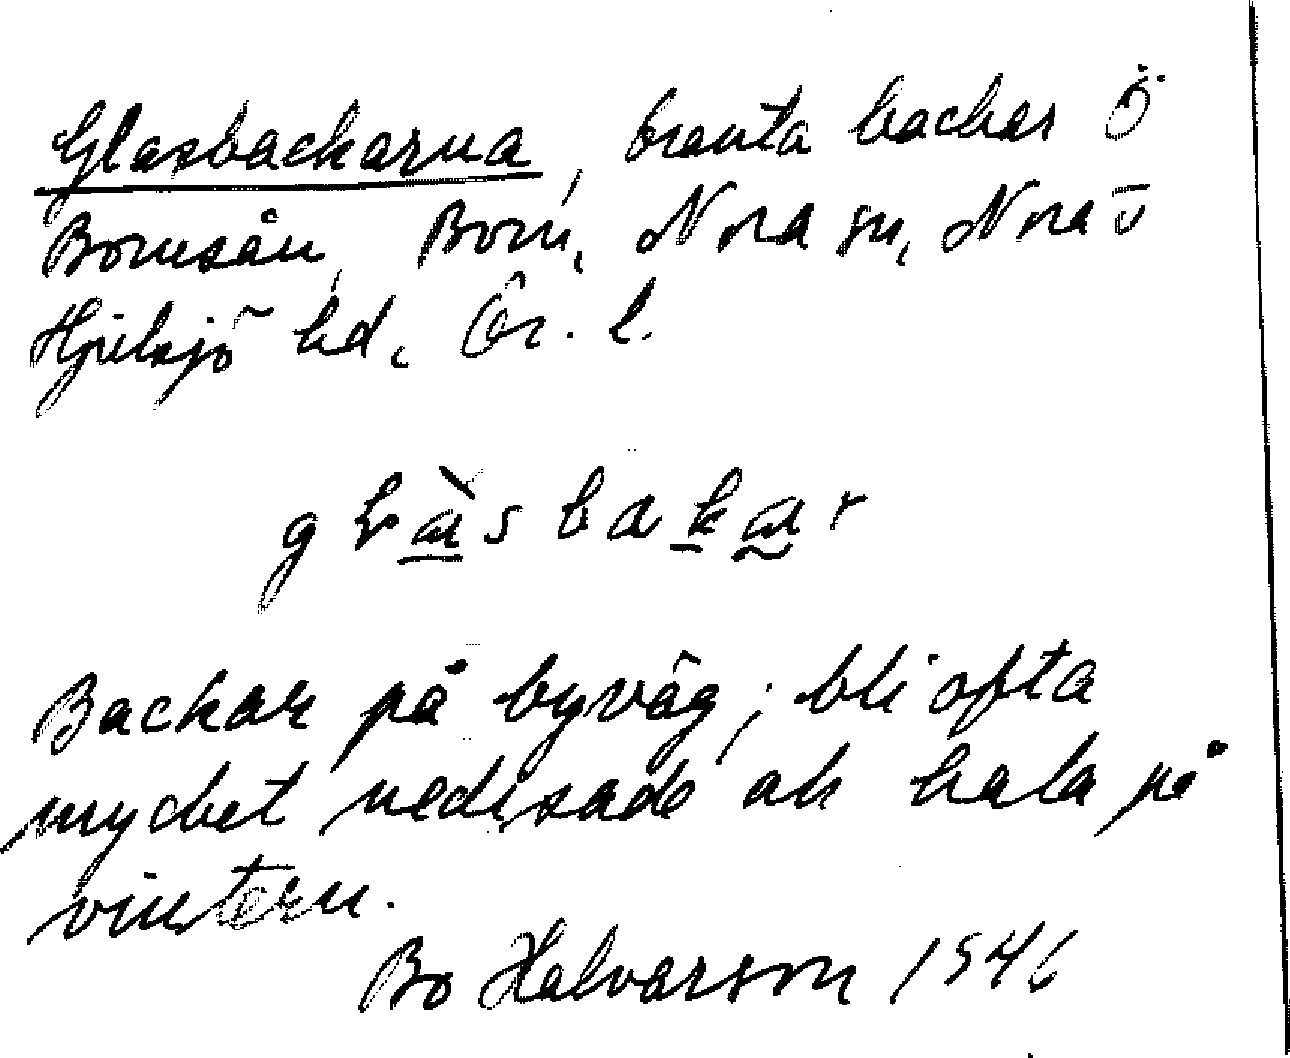 Glasbackarna, branta backar Ö
Bornsån, Born, Nora sn, Nora o
Hjulsjö hd, Ör. l.
gɫàsbakar
Backar på byväg; bli ofta
mycket nedisade ah hala på
vintern.
Bo Halvarson 1946